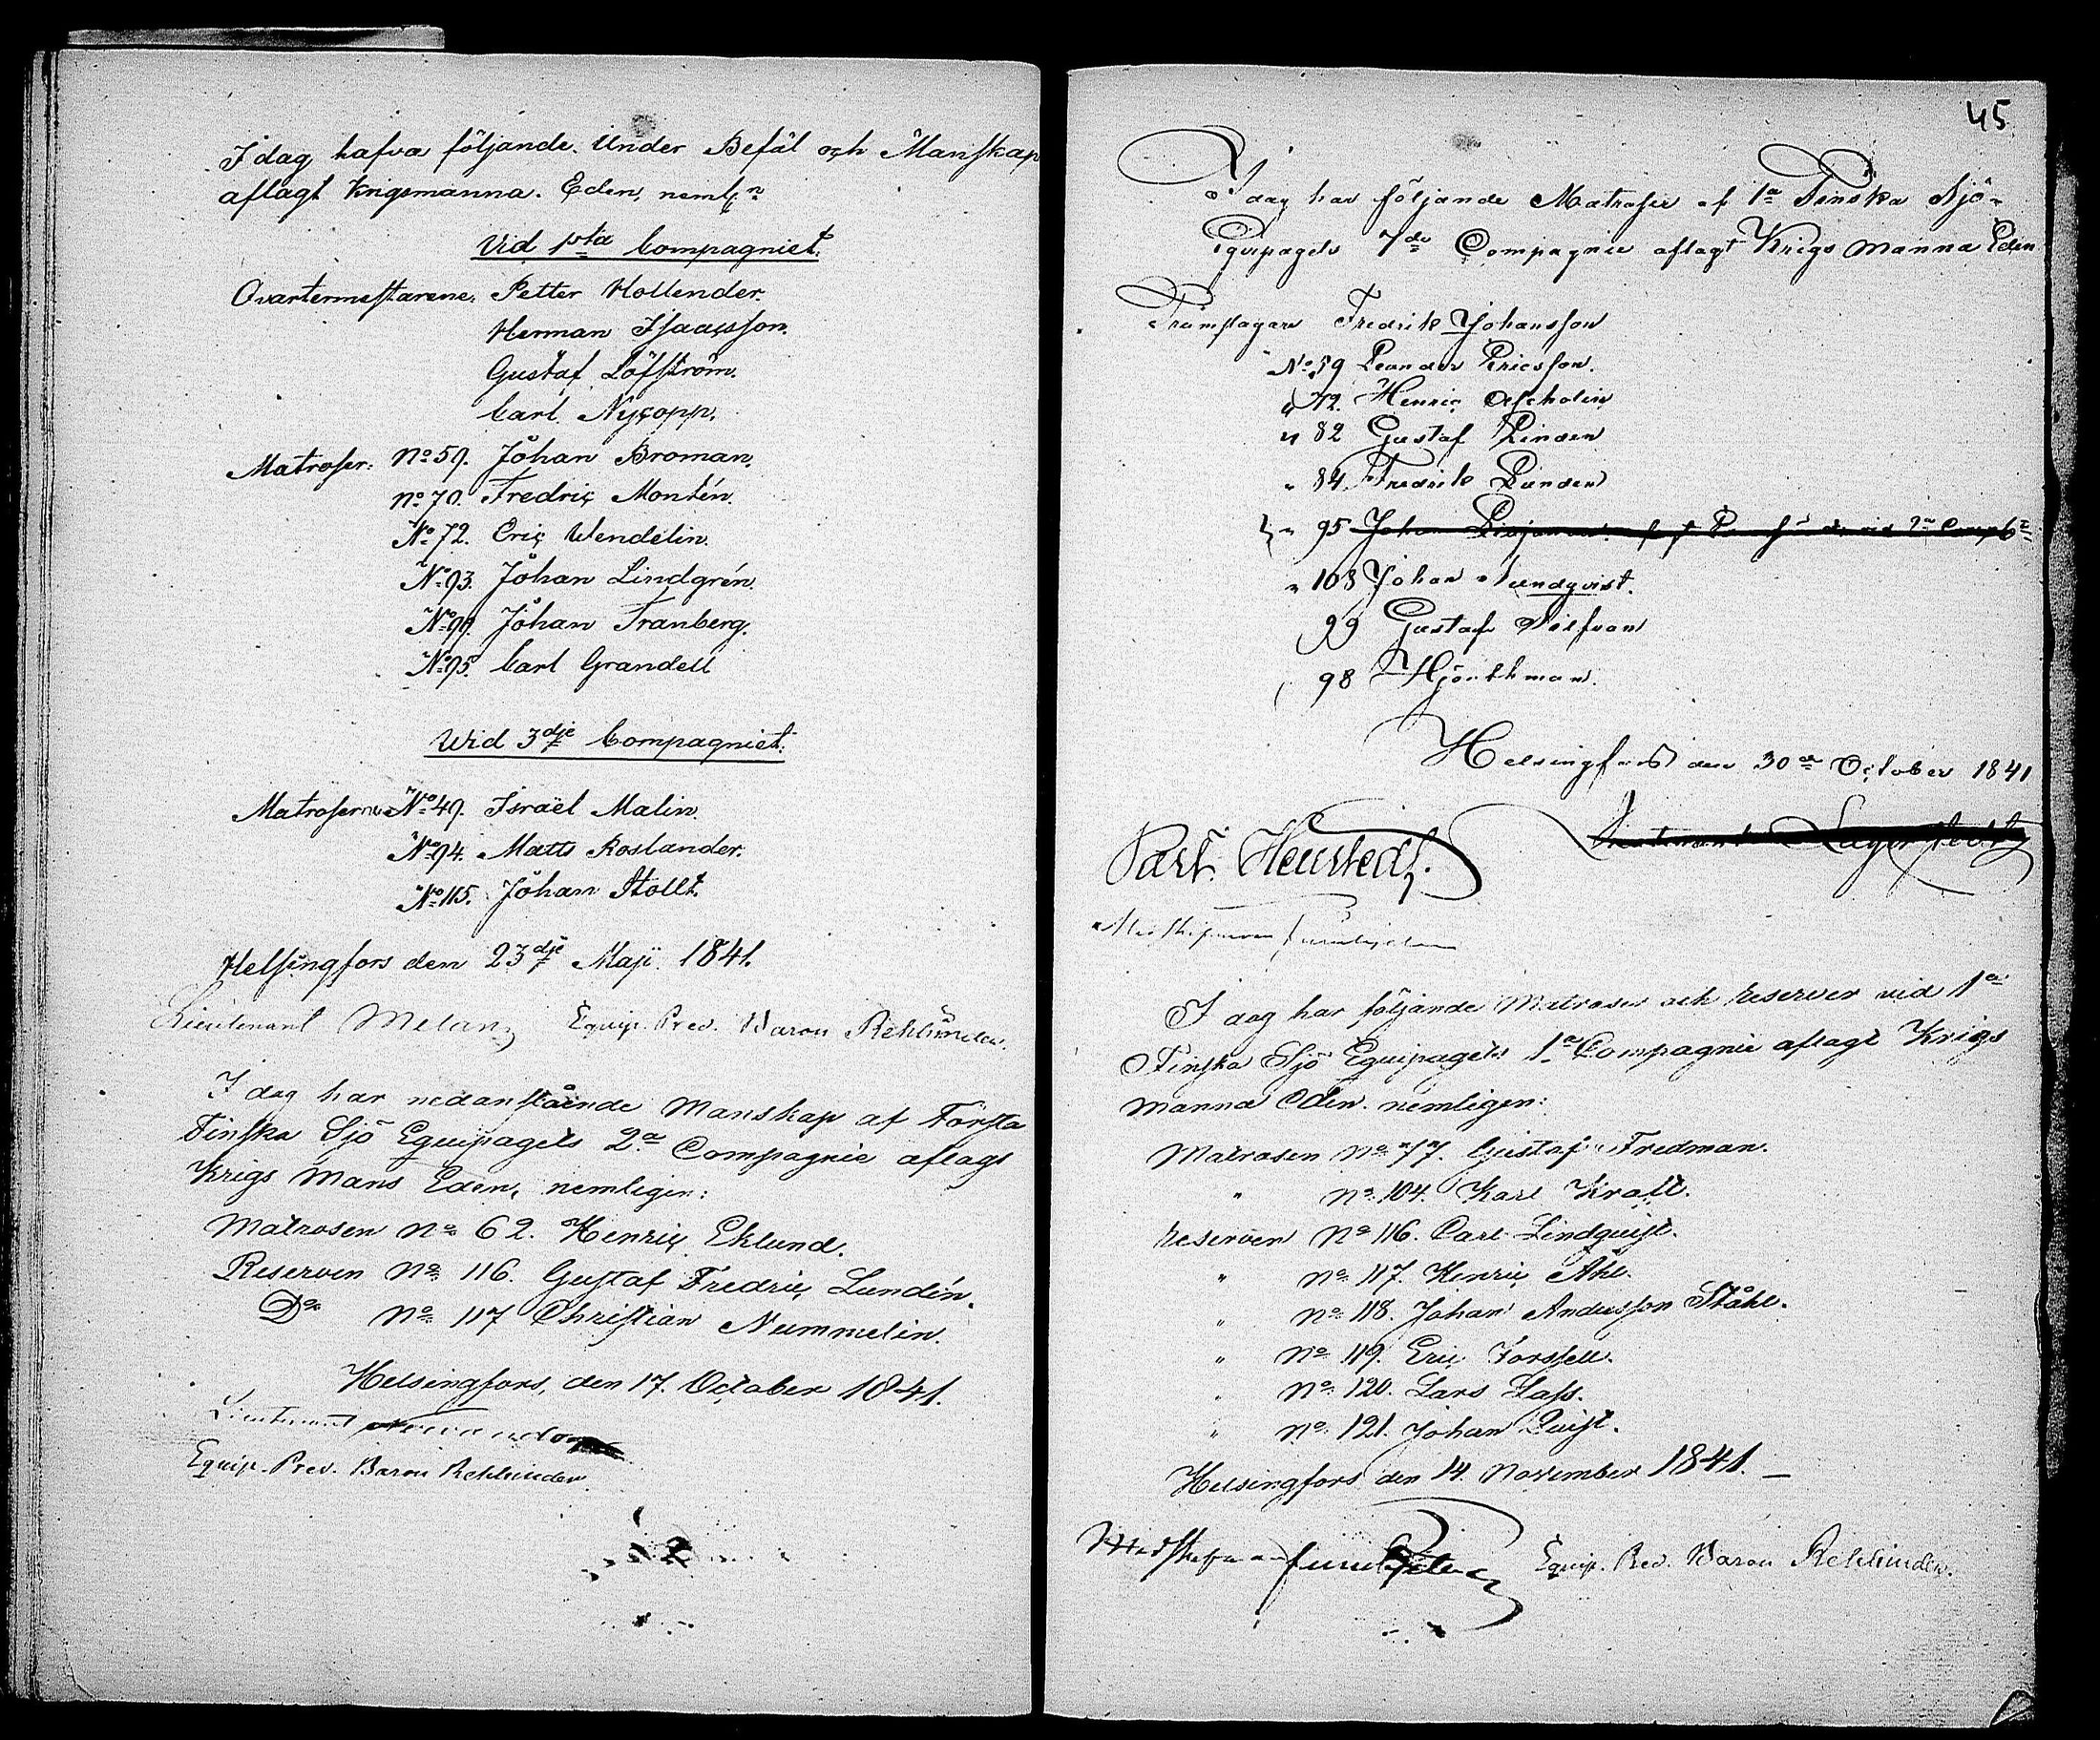 I dag hafva följande Under Befäl och Manskap
aflagt Krigsmanna Eden, neml:n
Vid 1sta Compagniet.
Qvartermestarene: Petter Hollender.
Herman Isaacsson.
Gustaf Löfström.
Carl Nycopp.
Matroser: No 59. Johan Broman.
No 70. Fredric Montén.
No 72. Eric Wendelin.
No 93. Johan Lindgrén.
Johan Tranberg.
No 95. Carl Grandell
Wid 3dje Compagniet.
Matroserne No 49. Israël Malin.
No 94. Matts Roslander.
No 115. Johan Stollt.
Helsingfors den 23dje Maji 1841.
Lieutenant Melan Equip. Pred. Baron Rehbinder.
I dag har nedanstående Manskap af Första
Finska Sjö Equipagets 2a Compagnie aflagt
Krigs Mans Eden, nemligen:
Matrosen No 62. Henric Eklund.
Reserven No 116. Gustaf Fredric Lundén.
Do No 117 Christian Nummelin.
Helsingfors, den 17. October 1841.
Lieutenant
Equip. Pred. Baron Rehbinder.
45
I dag har följande Matroser af 1a Finska Sjö-
Equipagets 7de Compagnie aflagt Krigs Manna Eden
Trumslagare Fredrik Johansson
No 59 Leander Ericsson.
" 72. Henric
" 82 Gustaf Linden
" 84 Fredrik Linden
" 95 Johan
" 108 Johan Sundqvist.
99 Gustaf
98 Hjorthman.
Helsingfors den 30de October 1841
Lieutenant Lagerstedt
Carl
I dag har följande Matroser och Reserver vid 1a
Finska Sjö Equipagets 1a Compagnie aflagt Krigs
Manna Eden. nemligen:
Matrosen No 77. Gustaf Fredman.
" No 104. Karl Kraft.
Reserven No 116. Carl Lindquist.
" No 117. Henric Åhl.
" No 118. Johan Andersson Ståhl.
" No 119. Eric Forssell.
" No 120. Lars Lass.
" No 121. Johan Quist.
Helsingfors den 14. November 1841. —
Equip. Pred. Baron Rehbinder.